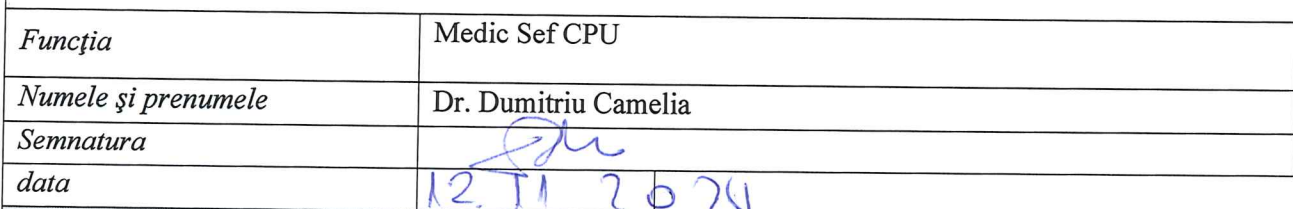 Funcţia Medic Sef CPU
Numele şi prenumele Dr. Dumitriu Camelia
Semnatura
data 12. 11 2024